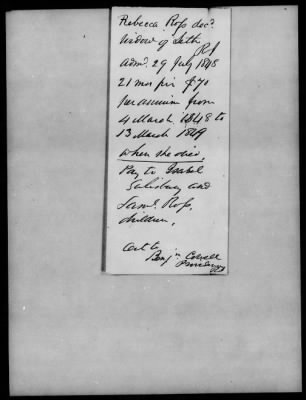 Rebecca Ross decd
Widow of Seth
R I
admd. 29 July 1848
21 mos pr $70
per annum from
4 March 1848 to
13 March 1849
when she died.
Pay to Isabel
Salisbury and
Saml. Ross,
children,
Cert to
Benjn Cowell
Providence